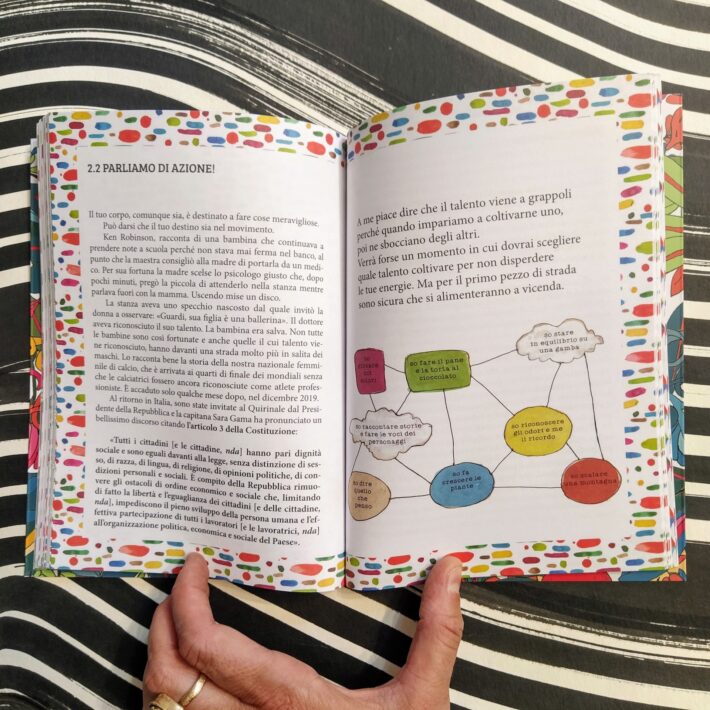 2.2 PARLIAMO DI AZIONE!
Il tuo corpo, comunque sia, è destinato a fare cose meravigliose.
Può darsi che il tuo destino sia nel movimento.
Ken Robinson, racconta di una bambina che continuava a
prendere note a scuola perché non stava mai ferma nel banco, al
punto che la maestra consigliò alla madre di portarla da un medi-
co. Per sua fortuna la madre scelse lo psicologo giusto che, dopo
pochi minuti, pregò la piccola di attenderlo nella stanza mentre
parlava fuori con la mamma. Uscendo mise un disco.
La stanza aveva uno specchio nascosto dal quale invitò la
donna a osservare: «Guardi, sua figlia è una ballerina». Il dottore
aveva riconosciuto il suo talento. La bambina era salva. Non tutte
le bambine sono così fortunate e anche quelle il cui talento vie-
ne riconosciuto, hanno davanti una strada molto più in salita dei
maschi. Lo racconta bene la storia della nostra nazionale femmi-
nile di calcio, che è arrivata ai quarti di finale dei mondiali senza
che le calciatrici fossero ancora riconosciute come atlete profes-
sioniste. È accaduto solo qualche mese dopo, nel dicembre 2019.
Al ritorno in Italia, sono state invitate al Quirinale dal Presi-
dente della Repubblica e la capitana Sara Gama ha pronunciato un
bellissimo discorso citando l'articolo 3 della Costituzione:
«Tutti i cittadini [e le cittadine, nda] hanno pari dignità
sociale e sono eguali davanti alla legge, senza distinzione di ses-
so, di razza, di lingua, di religione, di opinioni politiche, di con-
dizioni personali e sociali. È compito della Repubblica rimuo-
vere gli ostacoli di ordine economico e sociale che, limitando
di fatto la libertà e l'eguaglianza dei cittadini [e delle cittadine,
nda], impediscono il pieno sviluppo della persona umana e l'ef-
fettiva partecipazione di tutti i lavoratori [e le lavoratrici, nda]
all'organizzazione politica, economica e sociale del Paese».
A me piace dire che il talento viene a grappoli
perché quando impariamo a coltivarne uno,
poi ne sbocciano degli altri.
Verrà forse un momento in cui dovrai scegliere
quale talento coltivare per non disperdere
le tue energie. Ma per il primo pezzo di strada
sono sicura che si alimenteranno a vicenda.
so stare
in equilibrio su
una gamba
so
so fare il pane
e la torta al
cioccolato
so raccontare storie
e fare le voci dei
personaggi
so riconoscere
gli odori e me
li ricordo
so dire
quello
che
penso
so fa
crescere le
piante
so scalare
una montagna